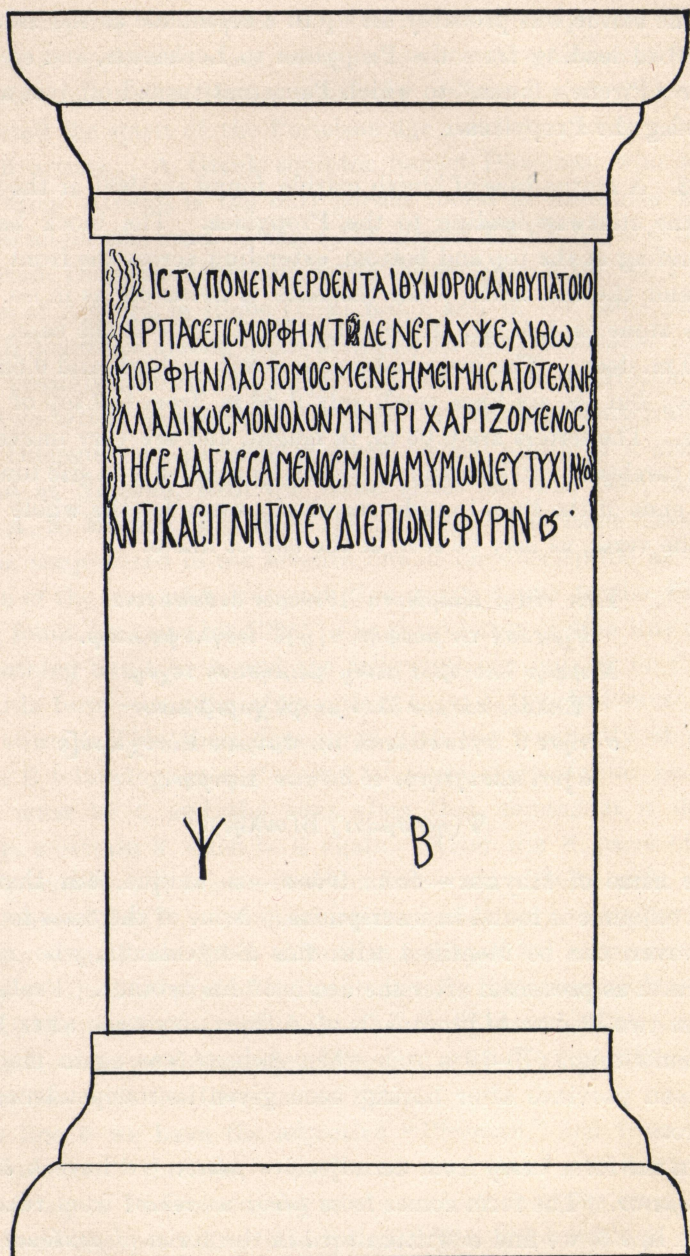 ΙϹΤΥΠΟΝΕΙΜΕΡΟΕΝΤΑΙΘΥΝΟΡΟϹΑΝΘΥΠΑΤΟΙΟ
ΗΡΠΑϹΕΤΙϹΜΟΡΦΗΝΤΗΔΕΝΕΓΛΥΨΕΛΙΘΩ
ΜΟΡΦΗΝΛΑΟΤΟΜΟϹΜΕΝΕΗΜΕΙΜΗϹΑΤΟΤΕΧΝΗ
ΛΛΑΔΙΚΟϹΜΟΝΟΛΟΝΜΗΤΡΙΧΑΡΙΖΟΜΕΝΟϹ
ΤΗϹΕΔΑΓΑϹϹΑΜΕΝΟϹΜΙΝΑΜΥΜΩΝΕΥΤΥΧΙΑΝΩ
ΑΝΤΙΚΑϹΙΓΝΗΤΟΥΕΥΔΙΕΠΩΝΕΦΥΡΗΝ
Ψ Β